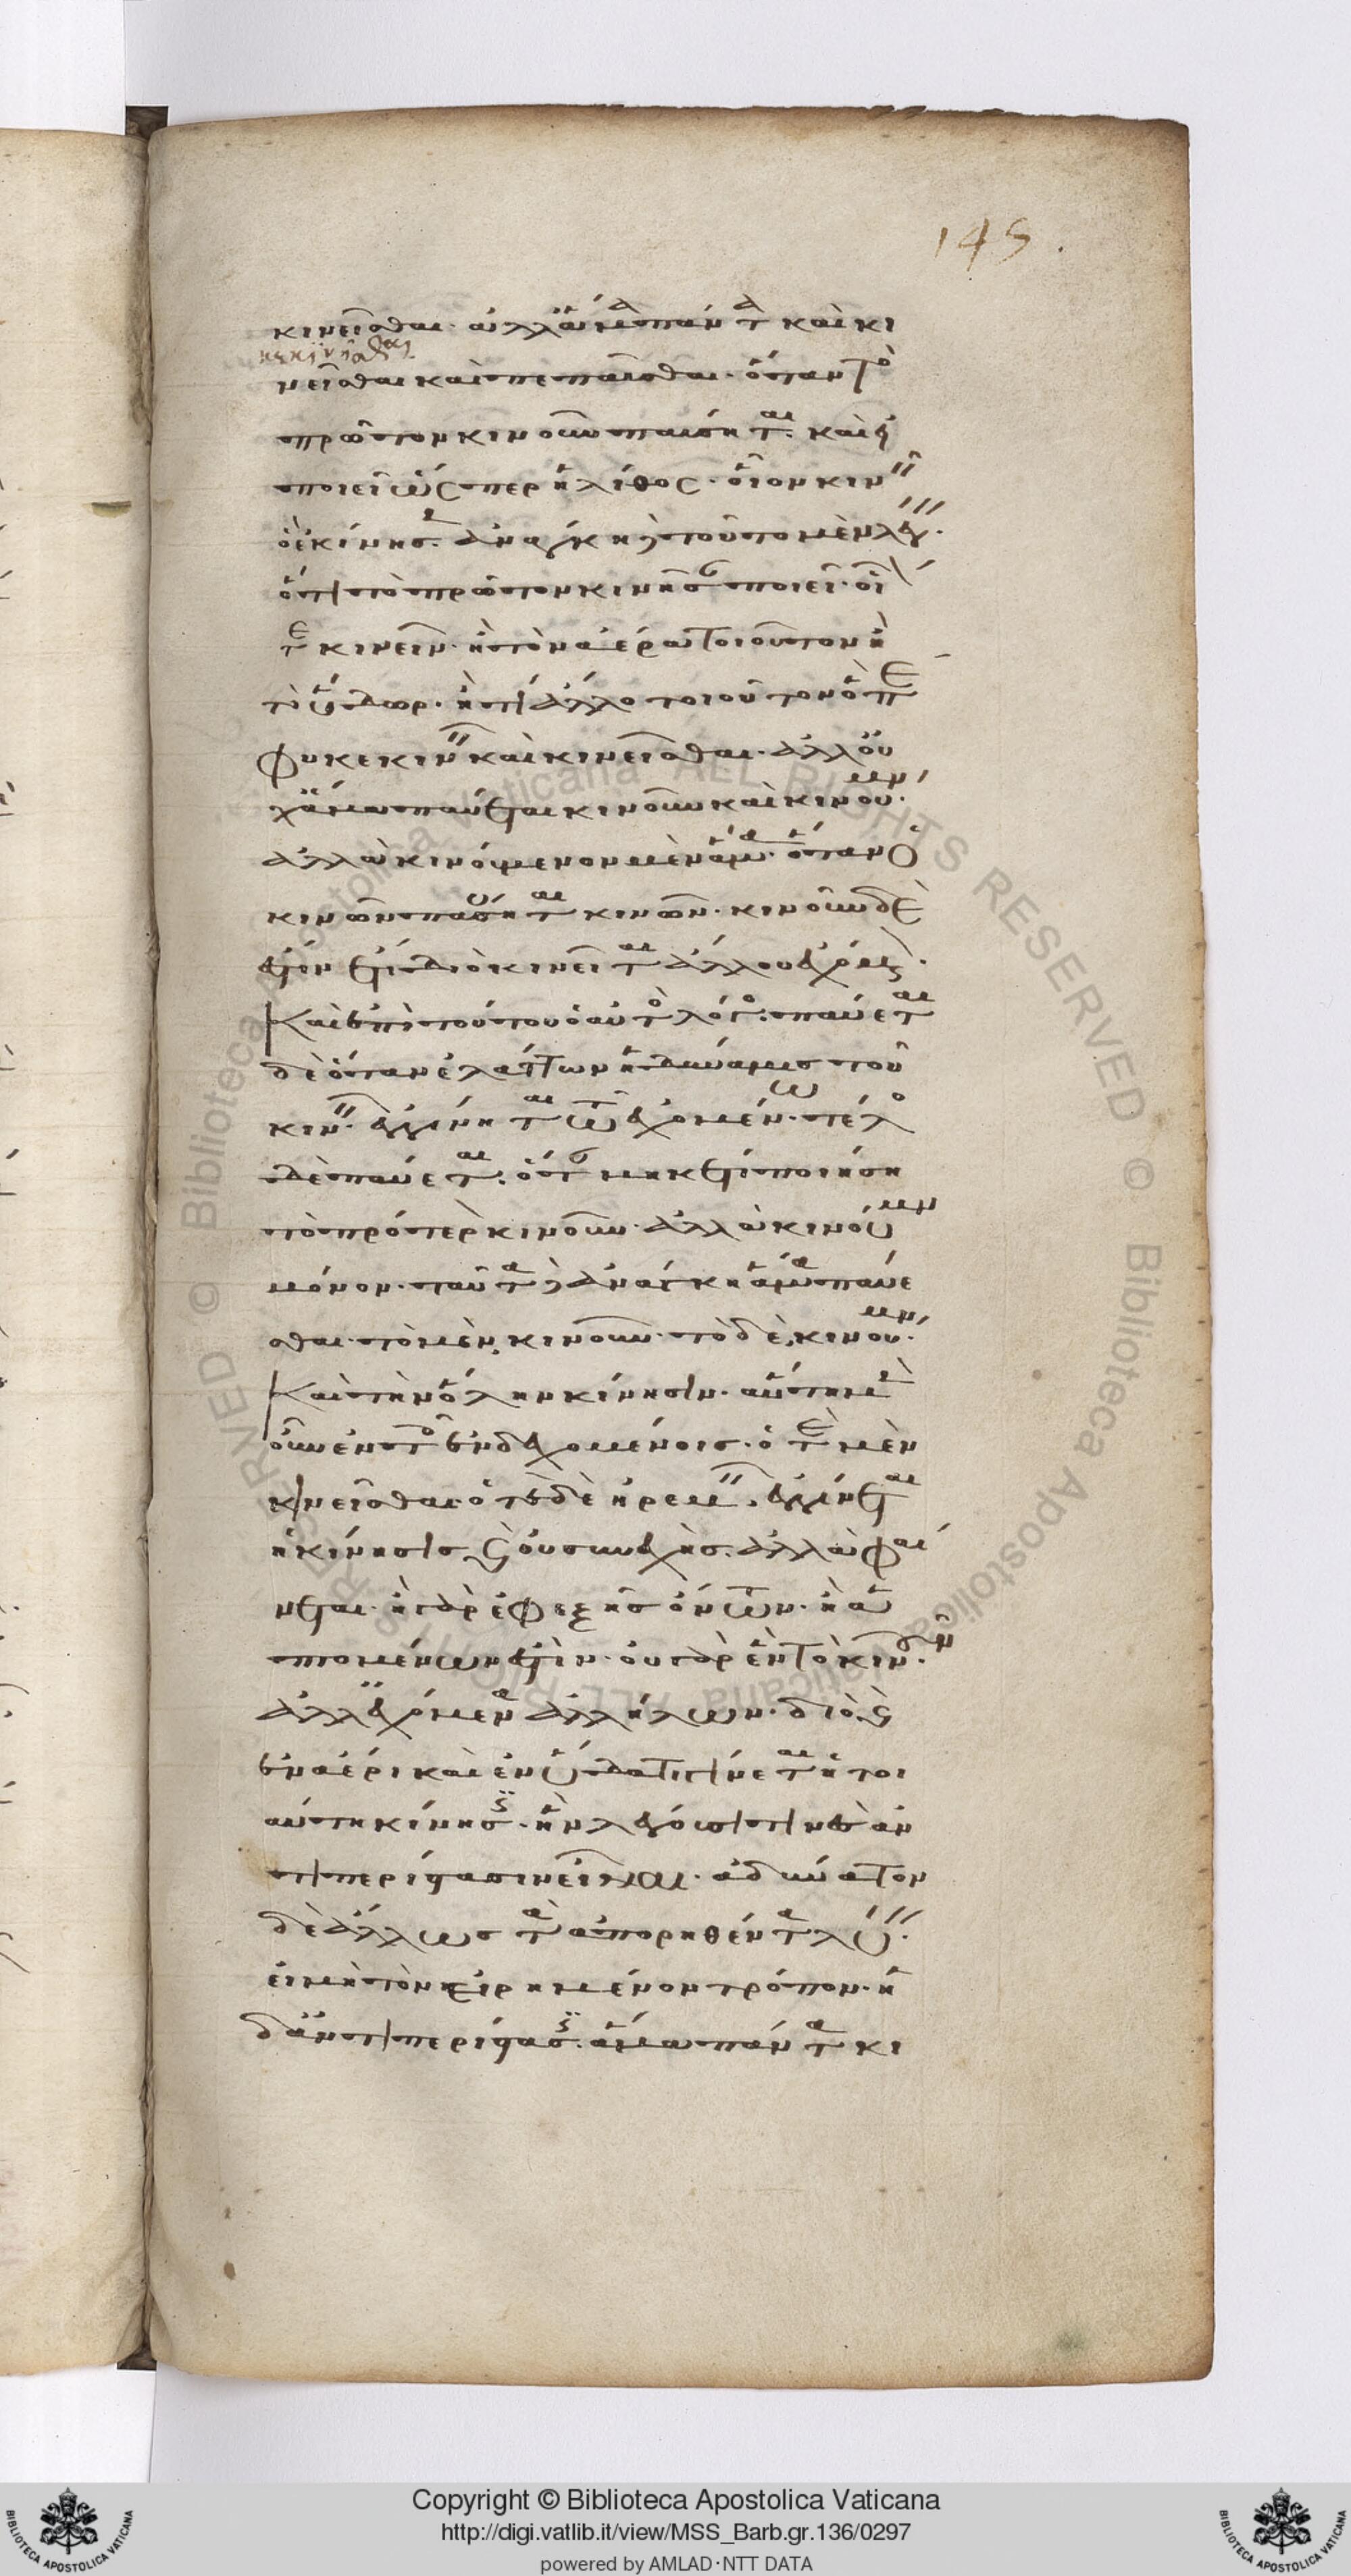 145.
κινεῖσθαι· ἀλλ' ἅμα πάντα καὶ κι
κεκινῆσθαι
νεῖσθαι καὶ πεπαῦσθαι· ὅταν τὸ
πρῶτον κινοῦν παύσηται. καὶ εἰ
ποιεῖ ὥσπερ ἡ λίθος· οἷον κινεῖν
ὃ ἐκίνησε. ἀνάγκη δὴ τοῦτο μὲν λέγειν.
ὅτι τὸ πρῶτον κινῆσαν ποιεῖ· οἷόν
τε κινεῖν· ἢ τὸν ἀέρα τοιοῦτον ἢ
τὸ ὕδωρ· ἤ τι ἄλλο τοιοῦτον ὃ πέ
φυκε κινεῖν καὶ κινεῖσθαι· ἀλλ' οὐ
χ ἅμα παύεται κινοῦν καὶ κινούμενον.
ἀλλὰ κινούμενον μὲν ἅμα ὅταν ὁ
κινῶν παύσηται κινῶν· κινοῦν δὲ
ἐστὶν ἔτι διὸ κινεῖται ἄλλου
καὶ ἐπὶ τούτου ὁ αὐτὸς λόγος. παύεται
δὲ ὅταν ἐλάττων ἡ δύναμις τοῦ
κινεῖν ἐγγίνηται τῶ ἐχομένω. τέλος
δὲ παύεται. ὅταν μηκέτι ποιήση
τὸ πρότερον κινοῦν· ἀλλὰ κινούμενον
μόνον· ταῦτα δὴ ἀνάγκη ἅμα παύε
σθαι· τὸ μὲν κινοῦν· τὸ δὲ κινούμενον.
καὶ τὴν ὅλην κίνησιν· αὕτη μὲν
οὖν ἐν τοῖς ἐνδεχομένοις· ὁτὲ μὲν
κινεῖσθαι ὁτὲ δὲ ἠρεμεῖν. ἐγγίνεται
ἡ κίνησις καὶ οὐ συνεχής. ἀλλὰ φαί
νεται· ἢ γὰρ ἐφεξῆς ὄντων· ἢ ἁ
πτομένων ἐστίν· οὐ γὰρ ἓν τὸ κινοῦν.
ἀλλ' ἐχόμενα ἀλλήλων· διὸ καὶ
ἐν ἀέρι καὶ ἐν ὕδατι γίνεται ἡ τοι
αύτη κίνησις· ἣν λέγουσί τινες ἀν
τιπερίστασιν εἶναι· ἀδύνατον
δὲ ἄλλως τὰ ἀπορηθέντα λύειν.
εἰ μὴ τὸν εἰρημένον τρόπον· ἡ
δ' ἀντιπερίστασις. ἅμα πάντα κι
Copyright © Biblioteca Apostolica Vaticana
http://digi.vatlib.it/view/MSS_Barb.gr.136/0297
powered by AMLAD·NTT DATA